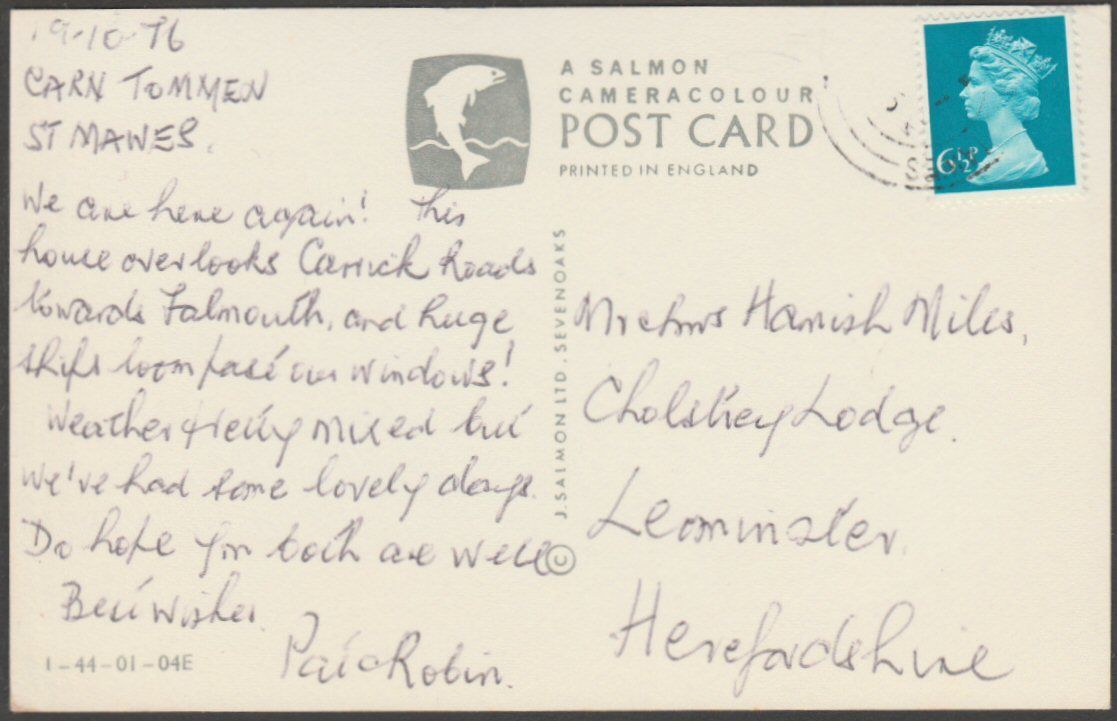 19-10-76
CARN TOMMEN
ST MAWES.
We are here again! This
house overlooks Carrick Roads
towards Falmouth, and huge
ships loom past our windows!
Weather pretty mixed but
we've had some lovely days.
Do hope you both are well
Best wishes.
Pat & Robin.
1-44-01-04E
A SALMON
CAMERACOLOUR
POST CARD
PRINTED IN ENGLAND
© J. SALMON LTD. SEVENOAKS
6½P
Mr & Mrs Hamish Miles,
Cholstrey Lodge.
Leominster.
Herefordshire